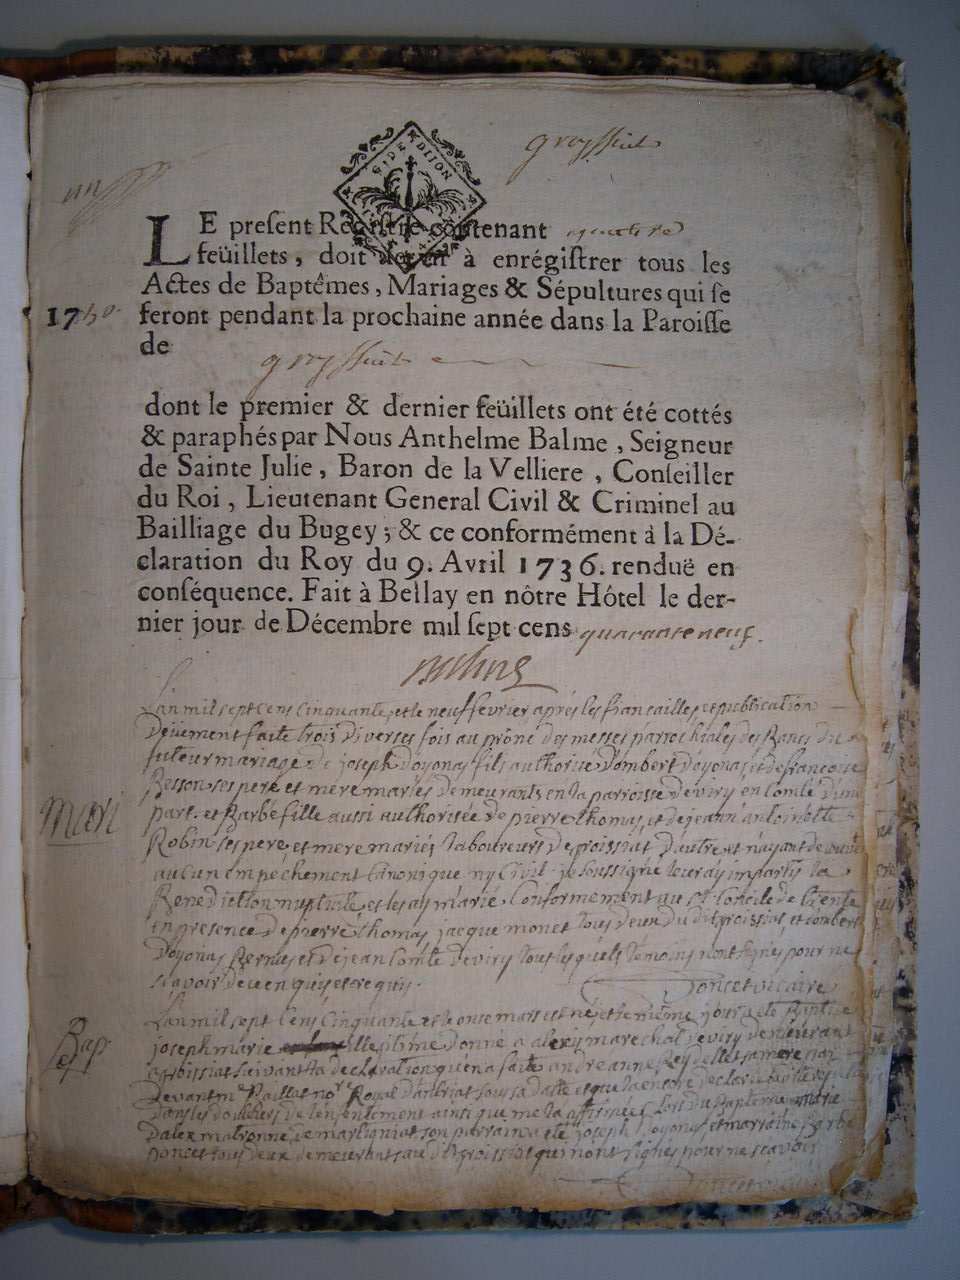 groyssiat
DIJON
LE preſent Regiſtre contenant quatre
feüillets, doit ſervir à enrégiſtrer tous les
Actes de Baptêmes, Mariages & Sépultures qui ſe
1750. feront pendant la prochaine année dans la Paroiſſe
de
groyssiat
dont le premier & dernier feüillets ont été cottés
& paraphés par Nous Anthelme Balme, Seigneur
de Sainte Julie, Baron de la Velliere, Conſeiller
du Roi, Lieutenant General Civil & Criminel au
Bailliage du Bugey; & ce conformément à la Dé-
claration du Roy du 9. Avril 1736. renduë en
conſéquence. Fait à Bellay en nôtre Hôtel le der-
nier jour de Décembre mil ſept cens quarante neuf.
Balme
Lan mil sept cens cinquante, et le neuf fevrier après les fiancailles, et publication
Deüement faite trois diverses fois au prône des messes parrochiales des bancs du
futeur mariage de joseph Doyonas fils authorisé Dombert Doyonas, et de francoise
Besson ses pere et mere mariés demeurants en la parroisse de viry en Comté D'une
Mari
part. et Barbe fille aussi authorisée de pierre Thomas, et de jeann' antoinette
Robin ses pere, et mere mariés laboureurs de groissiat D'autre, et n'ayant decouvert
aucun empechement Canonique ny Civil je soussigné leur ay imparty la
Benediction nuptiale et les ay marié Conformement au st Concile de trente
en presence De pierre Thomas, jacque monet tous deux du dit groissiat, et Dombert
Doyonas et de jean Comte de viry tous lesquels temoins n'ont signés pour ne
scavoir de ce enquis et requis.
Poncet vicaire
Bap
Lan mil sept Cens Cinquante et le onse mars est né, et le même jour a eté Baptisé
joseph marie illegitime donné a alexis marechal de viry demeurant
a arbissiat suivant la declaration qu'en a faite andreanne Reydellet sa mere par
devant me Baillat nore Royal D'arbent sous sa datte et que la encore declaré
dans les douleurs de l'enfentement ainsi que me la affirmée lors du Baptême marie
de martigniat son parrain a eté joseph Doyonas, et marraine Barbe
poncet tous deux demeurants au dit groissiat qui n'ont signés pour ne scavoir
Poncet vicaire